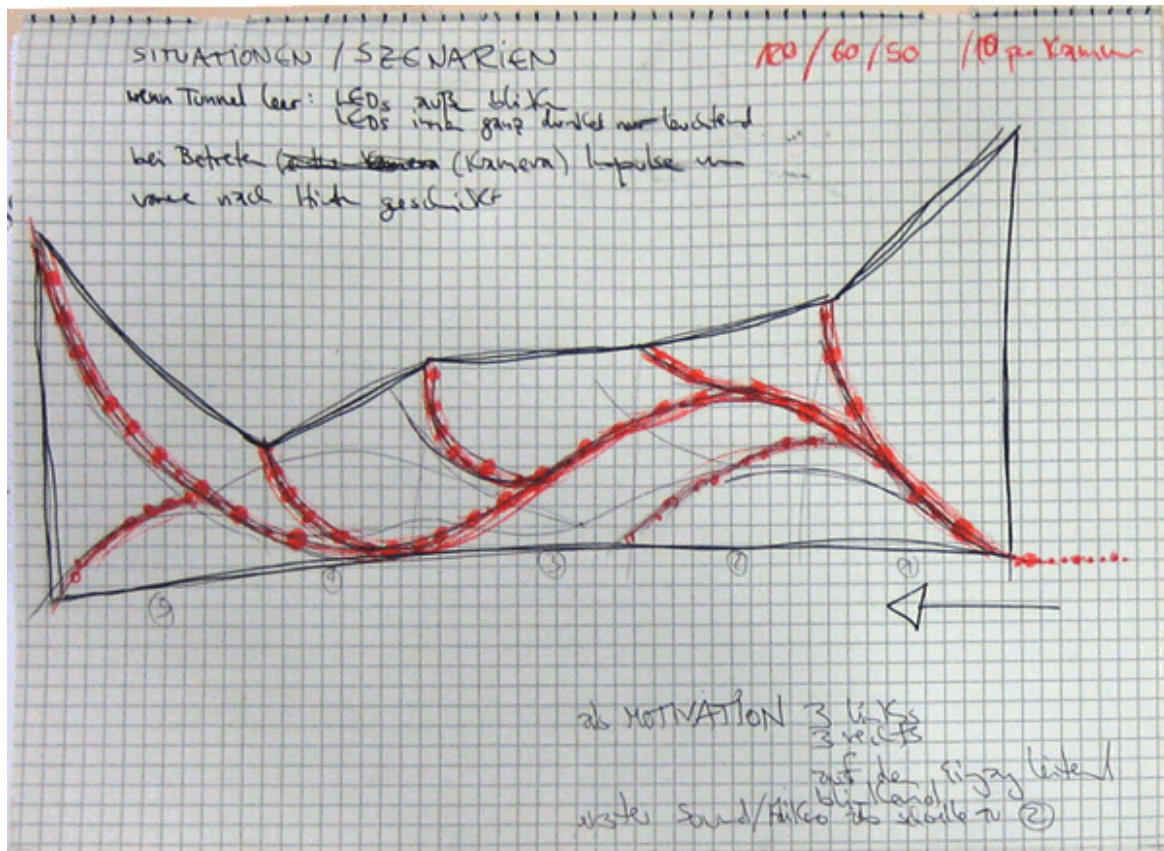 SITUATIONEN / SZENARIEN
120 / 60 / 50 / 10 pro Kammer
wenn Tunnel leer: LEDs außen blinken
LEDs innen ganz dunkel nur leuchtend
bei Betreten (Kamera) Impulse von
vorne nach Hinten geschickt
5
4
3
2
1
als MOTIVATION 3 links
3 rechts
auf den Eingang leitend
blinkend
erster Sound/ zu ②